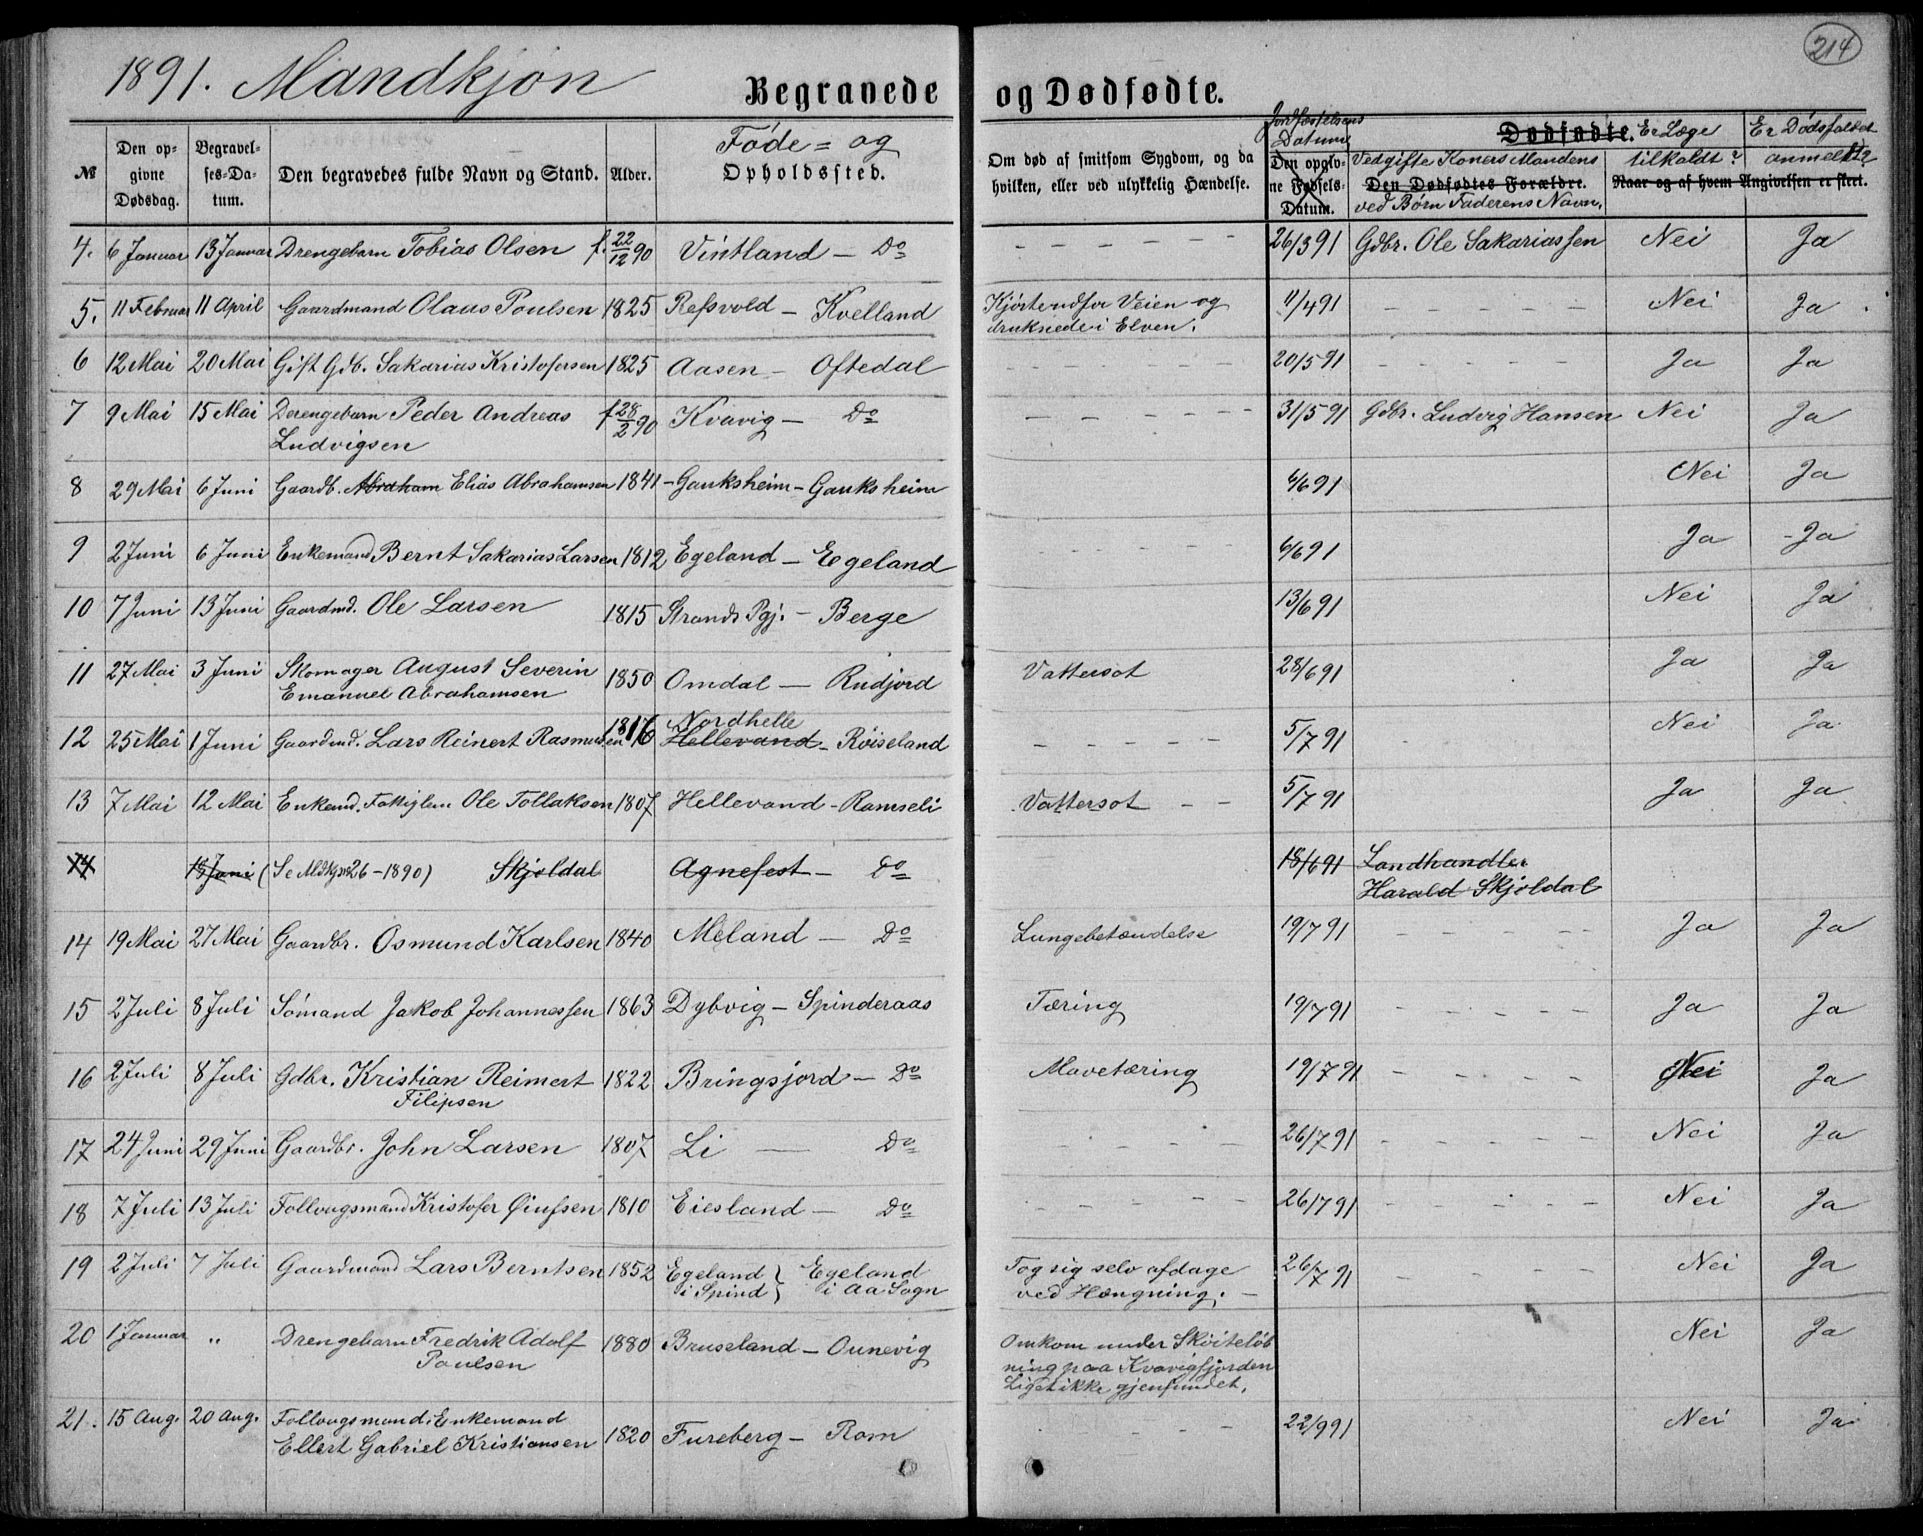 214
1891. Mandkjøn
Begravede og Dødfødte.
№
Den opgivne Dødsdag.
Begravelses-Datum.
Den begravedes fulde Navn og Stand.
Alder.
Føde= og
Opholdssted.
Om død af smitsom Sygdom, og da
hvilken, eller ved ulykkelig Hændelse.
Jordfæstelsens
Datum
Den opgivne Fødsels-Datum.
Dødfødte.
Vedgifte Koners Mandens
Den Dødfødtes Forældre.
ved Børn Faderens Navn.
Er Læge
tilkaldt?
Er Dødsfaldet
anmeldt?
Naar og af hvem Angivelsen er skeet.
4. 6 Januar 13 Januar Drengebarn Tobias Olsen f. 22/12 90 Vintland — Do - - - - - - 26/3 91 Gdbr. Ole Sakariassen Nei Ja
5. 11 Februar 11 April Gaardmand Olaus Poulsen 1825 Refsvold — Kvelland Kjørte udfor Veien og 11/4 91 - - - - - Nei Ja
druknede i Elven.
6 12 Mai 20 Mai Gift Gdb. Sakarias Kristofersen 1825 Aasen — Oftedal - - - - - - 20/5 91 - - - - - Ja Ja
7 9 Mai 15 Mai Drengebarn Peder Andreas f 28/2 90 Kvavig — Do - - - - - - 31/5 91 Gdbr. Ludvig Hansen Nei Ja
Ludvigsen
8 29 Mai 6 Juni Gaardb. Abraham Elias Abrahamsen 1841 - Gauksheim - Gauksheim 6/6 91 Nei Ja
9 2 Juni 6 Juni Enkemand Bernt Sakarias Larsen 1812 Egeland — Egeland - - - - - 6/6 91 Ja - Ja
10 7 Juni 13 Juni Gaardmd. Ole Larsen 1815 Strands Pgj. - Berge 13/6 91 Nei Ja
11 27 Mai 3 Juni Skomager August Severin 1850 Omdal — Rudjord Vattersot 28/6 91 Ja Ja
Emanuel Abrahamsen
12 25 Mai 1 Juni Gaardmd. Lars Reinert Rasmussen 1816 Nordhelle
Hellevand - Røiseland - - - - - 5/7 91 Nei Ja
13 7 Mai 12 Mai Enkemd. Fattiglem Ole Tollaksen 1807 Hellevand - Ramseli Vattersot - - 5/7 91 Ja Ja
14 18 Juni (Se Mdkjøn 26 - 1890) Skjoldal Agnefest — Do 18/6 91 Landhandler
Harald Skjoldal
14 19 Mai 27 Mai Gaardbr. Osmund Karlsen 1840 Meland — Do Lungebetændelse 19/7 91 - - - - - Ja Ja
15 2 Juli 8 Juli Sømand Jakob Johannessen 1863 Dybvig — Spinderaas Tæring 19/7 91 - - - - - Ja Ja
16 2 Juli 8 Juli Gdbr. Kristian Reimert 1822 Bringsjord — Do Mavetæring 19/7 91 - - - - - Nei Ja
Filipsen
17 24 Juni 29 Juni Gaardbr. John Larsen 1807 Li — Do - - - - 26/7 91 - - - - - Nei Ja
18 7 Juli 13 Juli Follougsmand Kristofer Øiufsen 1810 Eiesland — Do - - - - 26/7 91 - - - - Nei Ja
19 2 Juli 7 Juli Gaardmand Lars Berntsen 1852 Egeland } Egeland Tog sig selv afdage 26/7 91 - - - - - Nei Ja
i Spind } i Aa Sogn ved Hængning. -
20 1 Januar " Drengebarn Fredrik Adolf 1880 Bruseland — Ounevig Omkom under Skøiteløb Nei Ja
Poulsen ning paa Kvavigfjorden
Liget ikke gjenfundet.
21. 15 Aug. 20 Aug. Follougsmand, Enkemand 1820 Fureberg — Rom - - - - 22/9 91 Nei Ja
Ellert Gabriel Kristiansen